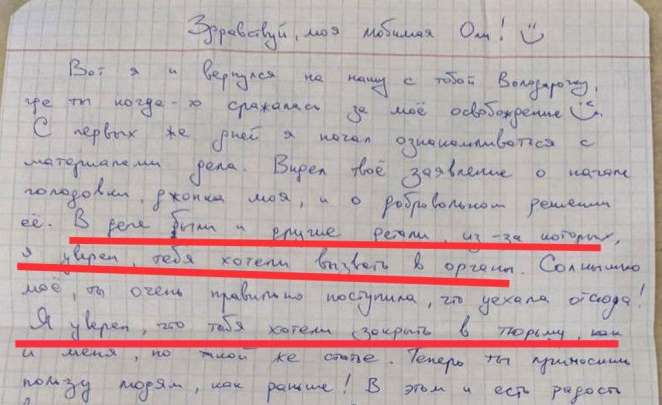 Здравствуй, моя любимая Оли! 
Вот я и вернулся на нашу с тобой Володарочку,
где ты когда-то сражалась за моё освобождение
С первых же дней я начал ознакамливаться с
материалами дела. Видел твоё заявление о начале
голодовки, моя, и о добровольном решении
её. В деле были и другие детали, из-за которых,
я уверен, тебя хотели вызвать в органы. Солнышко
моё, ты очень правильно поступила, что уехала отсюда!
Я уверен, что тебя хотели закрыть в тюрьму, как
и меня, по такой же статье. Теперь ты приносишь
пользу людям, как раньше! В этом и есть радость